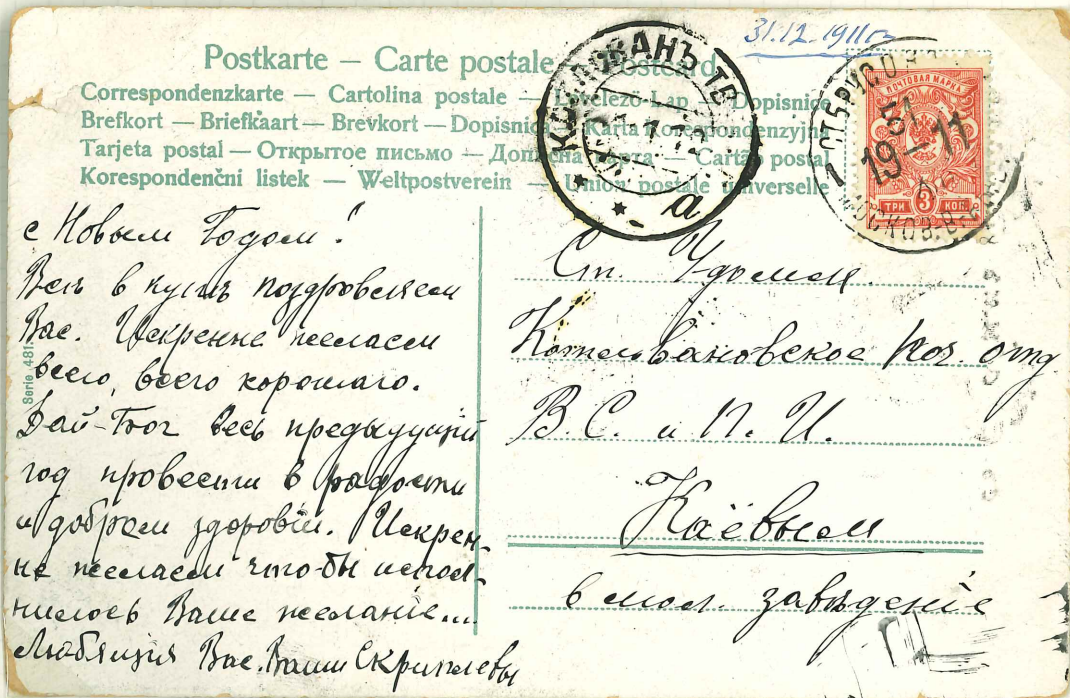 31.12.1911г.
Postkarte — Carte postale — Postcard
Correspondenzkarte — Cartolina postale — Levelező-Lap — Dopisnice
Brefkort — Briefkaart — Brevkort — Dopisnica — Karta Korespondenzyjna
Tarjeta postal — Открытое письмо — Дописна карта — Cartão postal
Korespondenční listek — Weltpostverein — Union postale universelle
ПОЧТОВАЯ МАРКА
31
19 — 11
ТРИ 3 КОП.
КОТЛОВАНЪ ТВ.
а
с Новым Годом!
Всъ в купъ поздровляем
Вас. Искренне желаем
всего, всего хорошаго.
Дай-Бог весь предыдущий
год провести в радости
и добром здоровiи. Искрен-
не желаем что-бы испол-
нилось Ваше желанiе...
Любящия Вас. Ваши Скрипилевы
Serie 481.
Ст. Удомля.
Котлывановское поч. отд
В. С. и П. И.
Каёвым
в мол. завъденiе